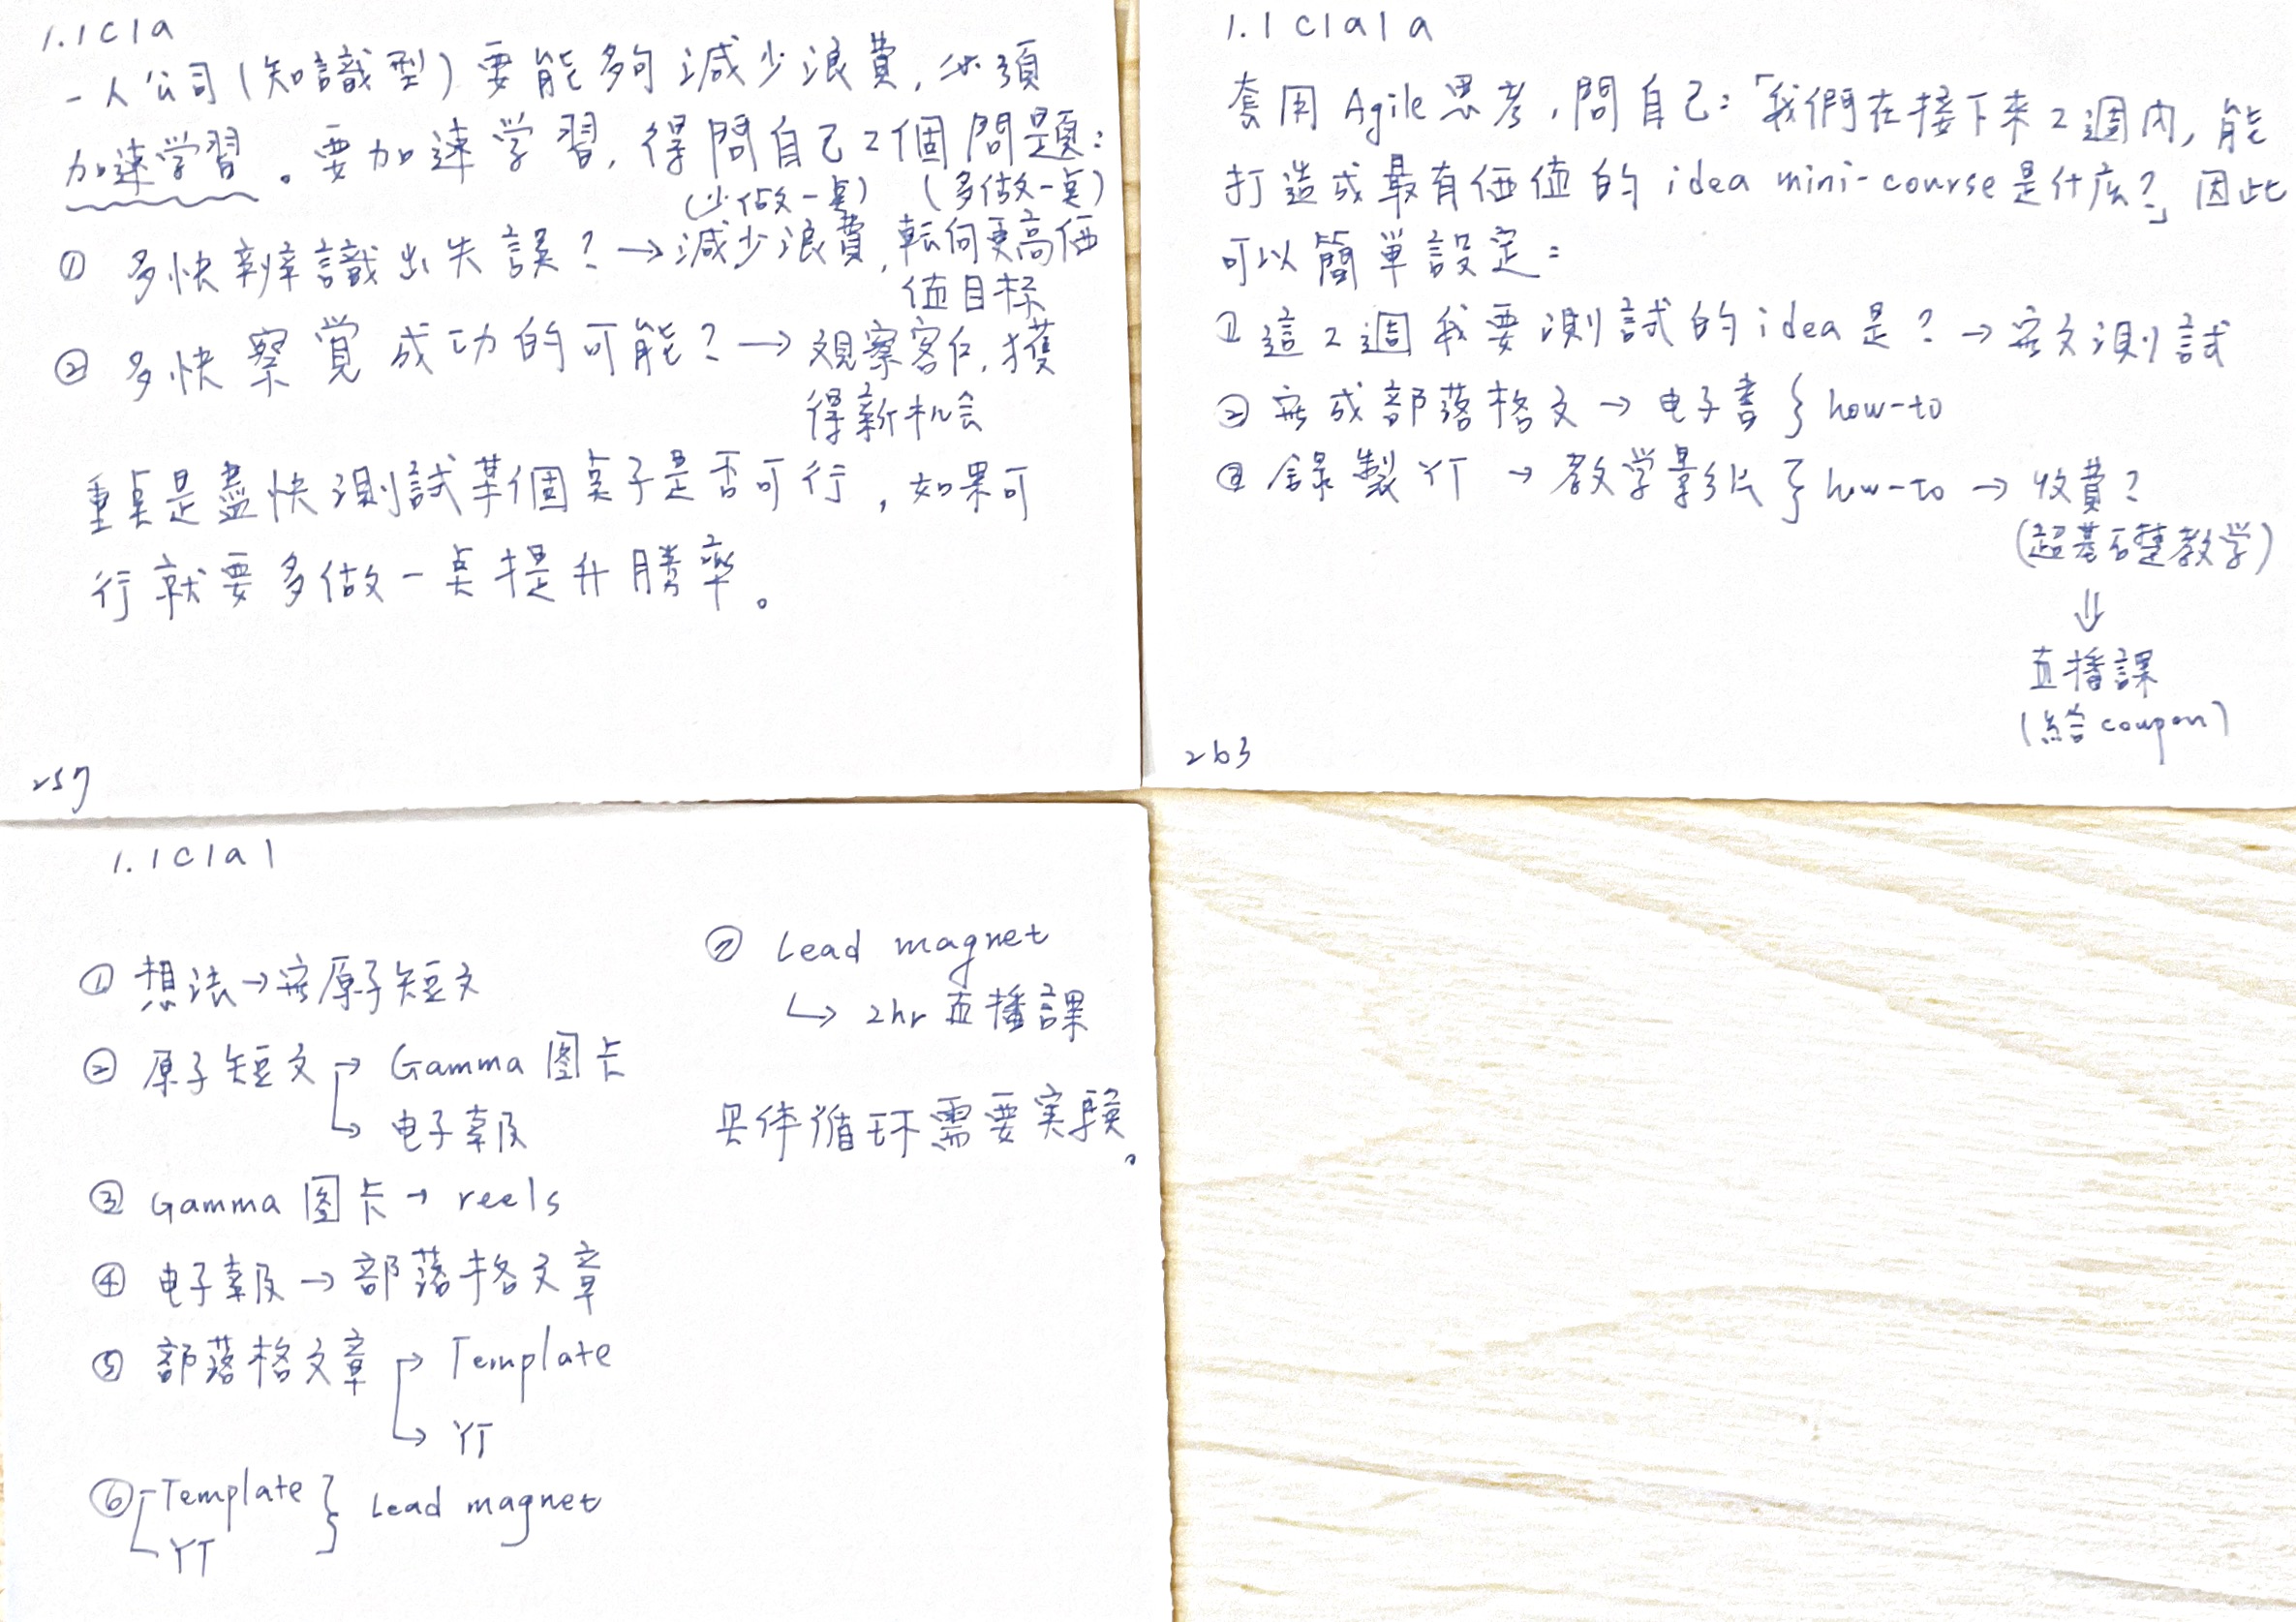 1.1c1a
一人公司(知識型)要能够減少浪費,必須
加速学習。要加速学習,得問自己2個問題:
(少做一点) (多做一点)
① 多快辨識出失誤?→減少浪費,転向更高価
値目标
② 多快察覚成功的可能?→観察客户,獲
得新机会
重点是盡快測試某個点子是否可行,如果可
行就要多做一点提升勝率。
257
1.1c1a1a
套用Agile思考,問自己:「我們在接下来2週内,能
打造成最有価値的idea mini-course是什么?」因此
可以簡單設定:
① 這2週我要測試的idea是?→寫文測試
② 寫成部落格文→电子書 } how-to
③ 錄製YT→教学影片 } how-to→收費?
(超基礎教学)
⇓
直播課
(給coupon)
263
1.1c1a1
① 想法→寫原子短文
② 原子短文→Gamma図卡
↳ 电子報
③ Gamma図卡→reels
④ 电子報→部落格文章
⑤ 部落格文章→Template
↳ YT
⑥ Template } Lead magnet
YT
⑦ Lead magnet
↳ 2hr直播課
具体循环需要実験。